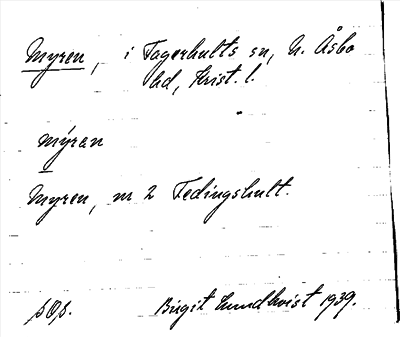 Myren, i Fagerhults sn, N. Åsbo
hd, Krist. l.
mýran
Myren, m 2 Fedingshult.
sOs.
Birgit Lundkvist 1939.